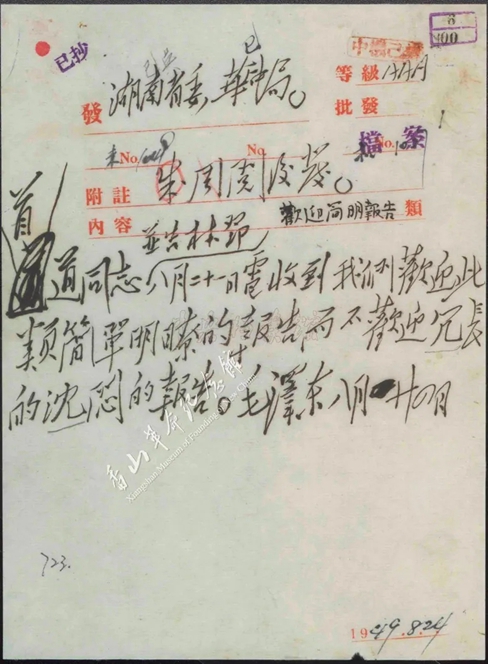 8
已抄
發 湖南省委，華中局。
等級 AAAA
批發
No.
No.
檔案
附註 朱周閱後發。
內容 並告林鄧
歡迎簡明報告 類
首道同志，八月二十一日電收到，我們歡迎此
類簡單明瞭的報告，而不歡迎冗長
的沈悶的報告。毛澤东八月廿四日
香山革命纪念馆
723.
1949.8.24